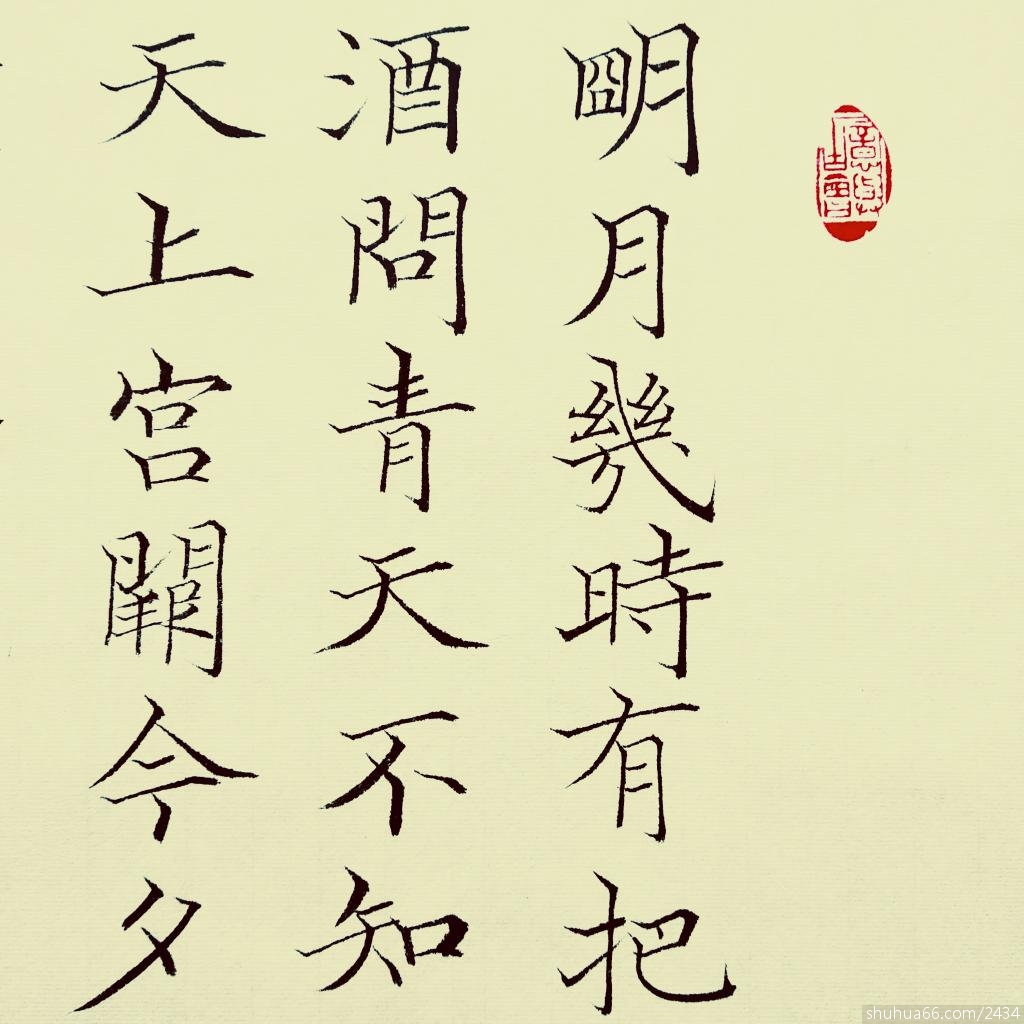 明月幾時有把
酒問青天不知
天上宫闕今夕
shuhua66.com/2434